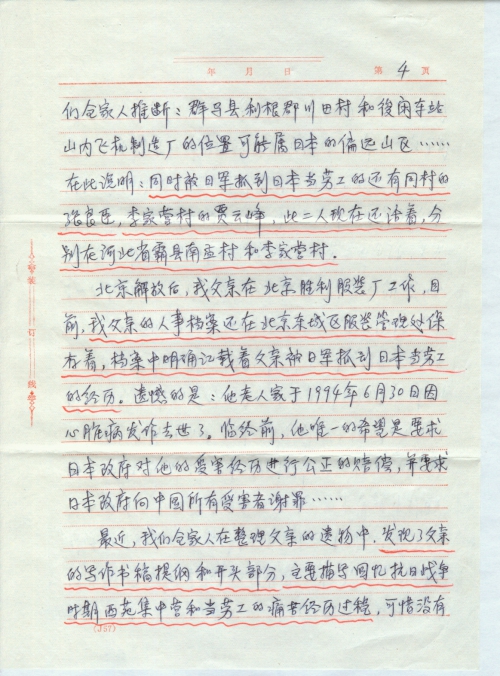 年 月 日 第 4 页
们全家人推断：群马县利根郡川田村和後闲车站
山内飞机制造厂的位置可能属日本的偏远山区……
在此说明：同时被日军抓到日本当劳工的还有同村的
张良臣，李家营村的贾云峰，此二人现在还活着，分
别在河北省霸县南孟村和李家营村．
北京解放后，我父亲在北京胜利服装厂工作，目
前，我父亲的人事档案还在北京东城区服装管理处保
存着，档案中明确记载着父亲被日军抓到日本当劳工
的经历。遗憾的是：他老人家于1994年6月30日因
心脏病发作去世了。临终前，他唯一的希望是要求
日本政府对他的受害经历进行公正的赔偿，并要求
日本政府向中国所有受害者谢罪……
最近，我们全家人在整理父亲的遗物中，发现了父亲
的写作书稿提纲和开头部分，主要描写回忆抗日战争
时期西苑集中营和当劳工的痛苦经历过程，可惜没有
装
订
线
(J57)